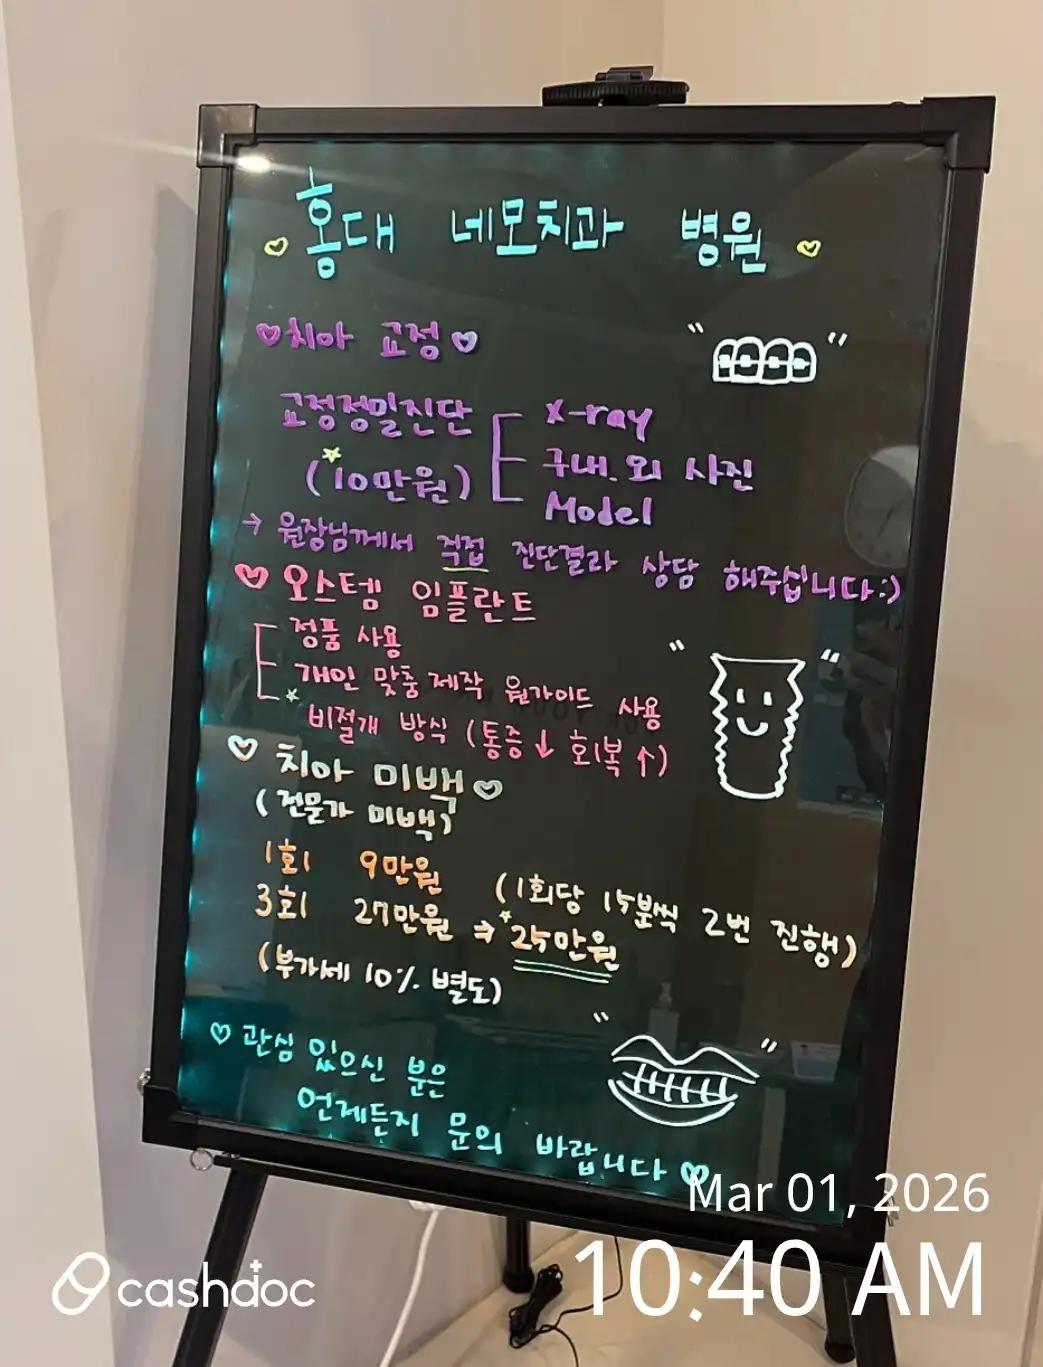 ♡ 홍대 네모치과 병원 ♡
♡치아 교정♡
교정정밀진단
(10만원)
X-ray
구내.외 사진
Model
→ 원장님께서 직접 진단결과 상담 해주십니다:)
♡ 오스템 임플란트
정품 사용
개인 맞춤 제작 원가이드 사용
비절개 방식 (통증↓ 회복↑)
♡ 치아 미백♡
(전문가 미백)
1회 9만원 (1회당 15분씩 2번 진행)
3회 27만원 ⇒ 25만원
(부가세 10% 별도)
♡ 관심 있으신 분은
언제든지 문의 바랍니다♡
Mar 01, 2026
10:40 AM
cashdoc